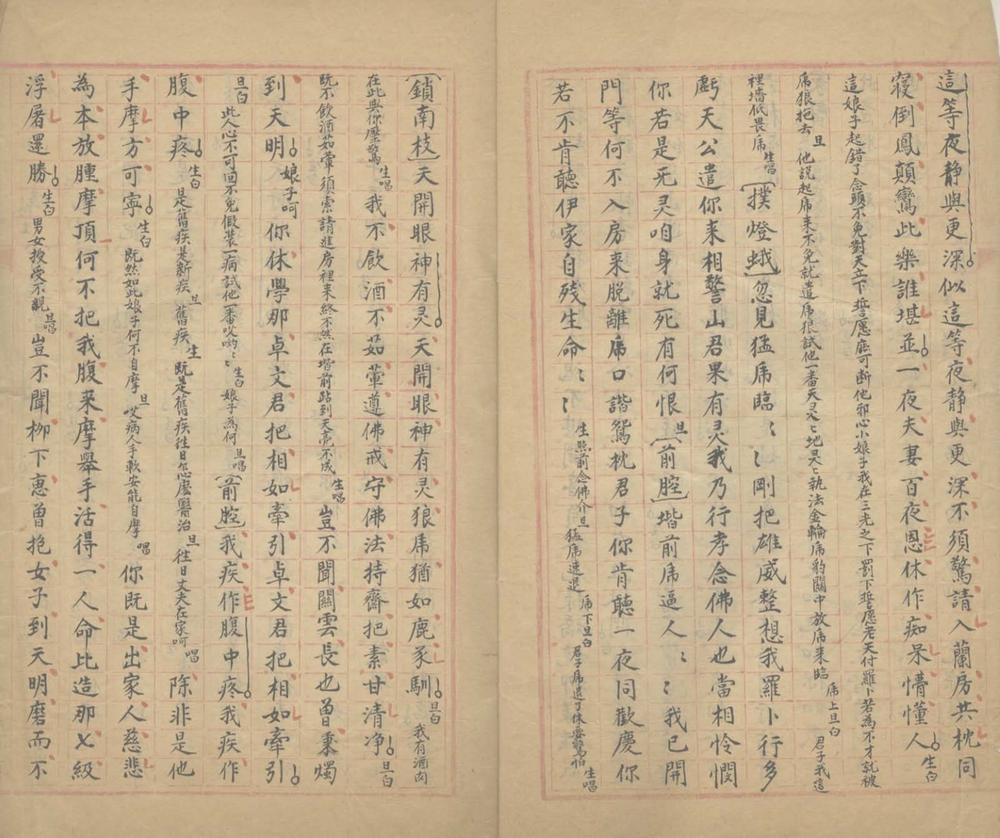 這等夜静與更深似這等夜静與更深不須驚請入蘭房共枕同
寝倒鳳顛鸞此樂誰堪並一夜夫妻百夜恩休作痴呆懵懂人生白
這娘子起錯了念頭不免對天立下誓愿庶可断他邪心小娘子我在三光之下罰下誓愿老天付羅卜若為不才就被
虎狼拖去旦他說起虎来不免就遣虎狼試他一番天灵〻地灵〻執法金輪虎豹關中放虎来臨虎上旦白君子我這
裡墻低畏虎生唱撲燈蛾忽見猛虎臨〻〻剛把雄威整想我羅卜行多
虧天公遣你来相警山君果有灵我乃行孝念佛人也當相怜憫
你若是死灵咱身就死有何恨旦前腔堦前虎逼人〻〻我已開
門等何不入房来脱離虎口諧鴛枕君子你肯聽一夜同歡慶你
若不肯聽伊家自残生命〻〻生照前念佛介旦猛虎速退虎下旦白君子虎退了休要驚怕生唱
鎖南枝天開眼神有灵天開眼神有灵狼虎猶如鹿豕馴旦白我有酒肉
在此與你壓驚生唱我不飲酒不茹葷遵佛戒守佛法持齋把素甘清净旦白
既不飲酒茹葷須索請進房裡来終不然在堦前跕到天亮不成生唱豈不聞關雲長也曾秉燭
到天明娘子呵你休學那卓文君把相如牽引卓文君把相如牽引
旦白此人心不可回不免假装一病試他一番哎喲〻生白娘子為何旦唱前腔我疾作腹中疼我疾作
腹中疼生白是舊疾是新疾旦舊疾生既是舊疾徃日怎麽醫治旦徃日丈夫在家呵唱除非是他
手摩方可寧生白既然如此娘子何不自摩旦哎病人手軟安能自摩唱你既是出家人慈悲
為本放腫摩頂何不把我腹来摩舉手活得一人命比造那七級
浮屠還勝生白男女授受不親旦唱豈不聞柳下惠曾抱女子到天明磨而不